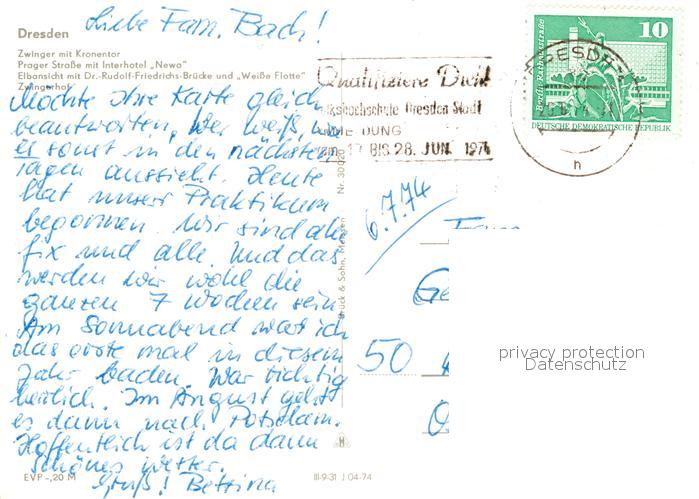 Liebe Fam. Bach!
Dresden
Zwinger mit Kronentor
Prager Straße mit Interhotel „Newa“
Elbansicht mit Dr.-Rudolf-Friedrichs-Brücke und „Weiße Flotte“
Zwingerhof
Möchte Ihre Karte gleich
beantworten, wer weiß, wie
es sonst in den nächsten
Tagen aussieht. Heute
hat unser Praktikum
begonnen. Wir sind alle
fix und alle. Und das
werden wir wohl die
ganzen 7 Wochen sein.
Am Sonnabend war ich
das erste mal in diesem
Jahr baden. War richtig
herrlich. Im August geht
es dann nach Potsdam.
Hoffentlich ist da dann
schönes Wetter.
Gruß! Bettina
EVP -,20 M
III-9-31 J 04-74
Nr. 30020
Brück & Sohn, Meissen
Qualifiziere Dich
Volkshochschule Dresden Stadt
17 BIS 28. JUN. 1974
DRESDEN
h
10
DEUTSCHE DEMOKRATISCHE REPUBLIK
6.7.74
50
privacy protection
Datenschutz